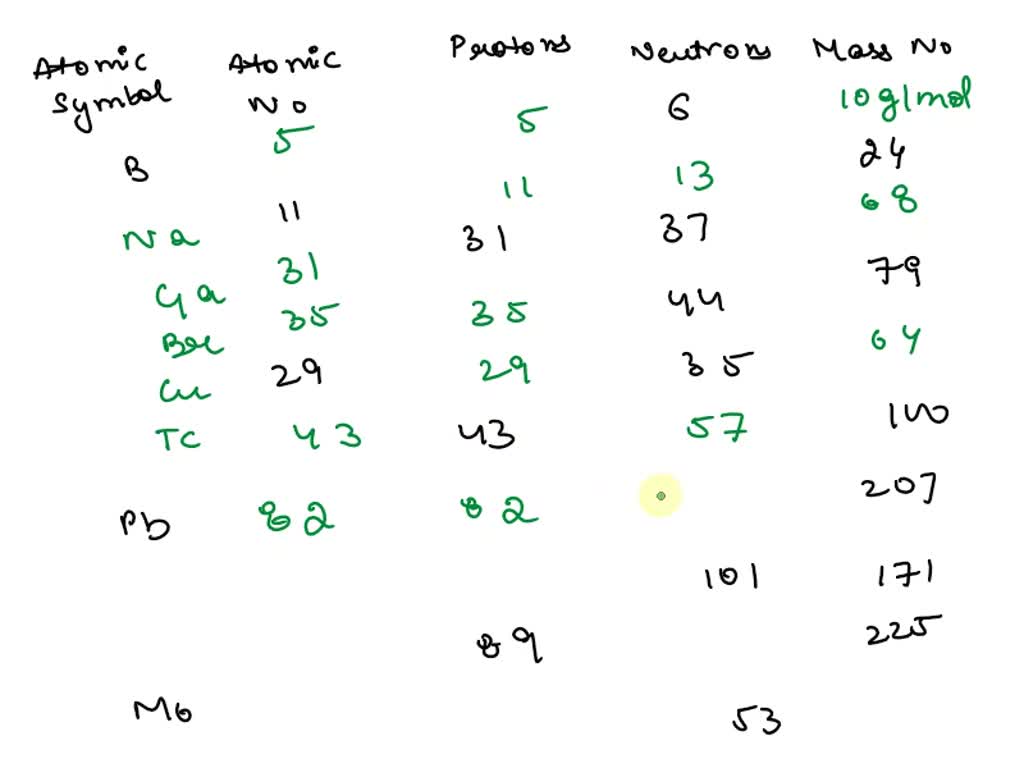 Atomic Symbol Atomic No Protons Neutrons Mass No
B 5 5 6 10 g/mol
Na 11 11 13 24
Ga 31 31 37 68
Br 35 35 44 79
Cu 29 29 35 64
TC 43 43 57 100
Pb 82 82 207
101 171
89 225
Mo 53